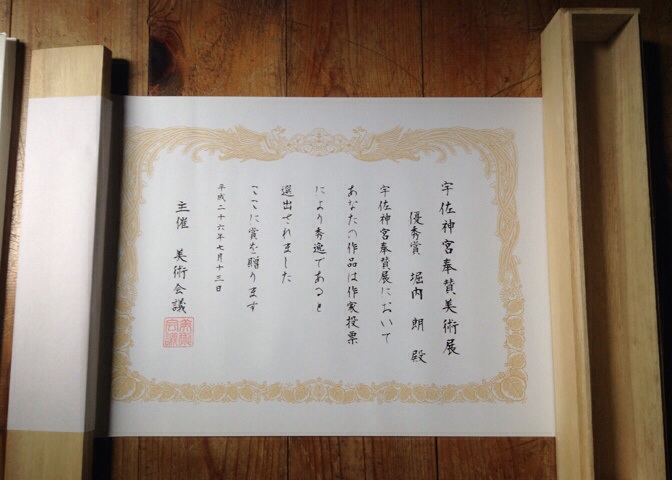 宇佐神宮奉賛美術展
優秀賞 堀内 朗 殿
宇佐神宮奉賛展において
あなたの作品は作家投票
により秀逸であると
選出されました
ここに賞を贈ります
平成二十六年七月十三日
主催 美術会議